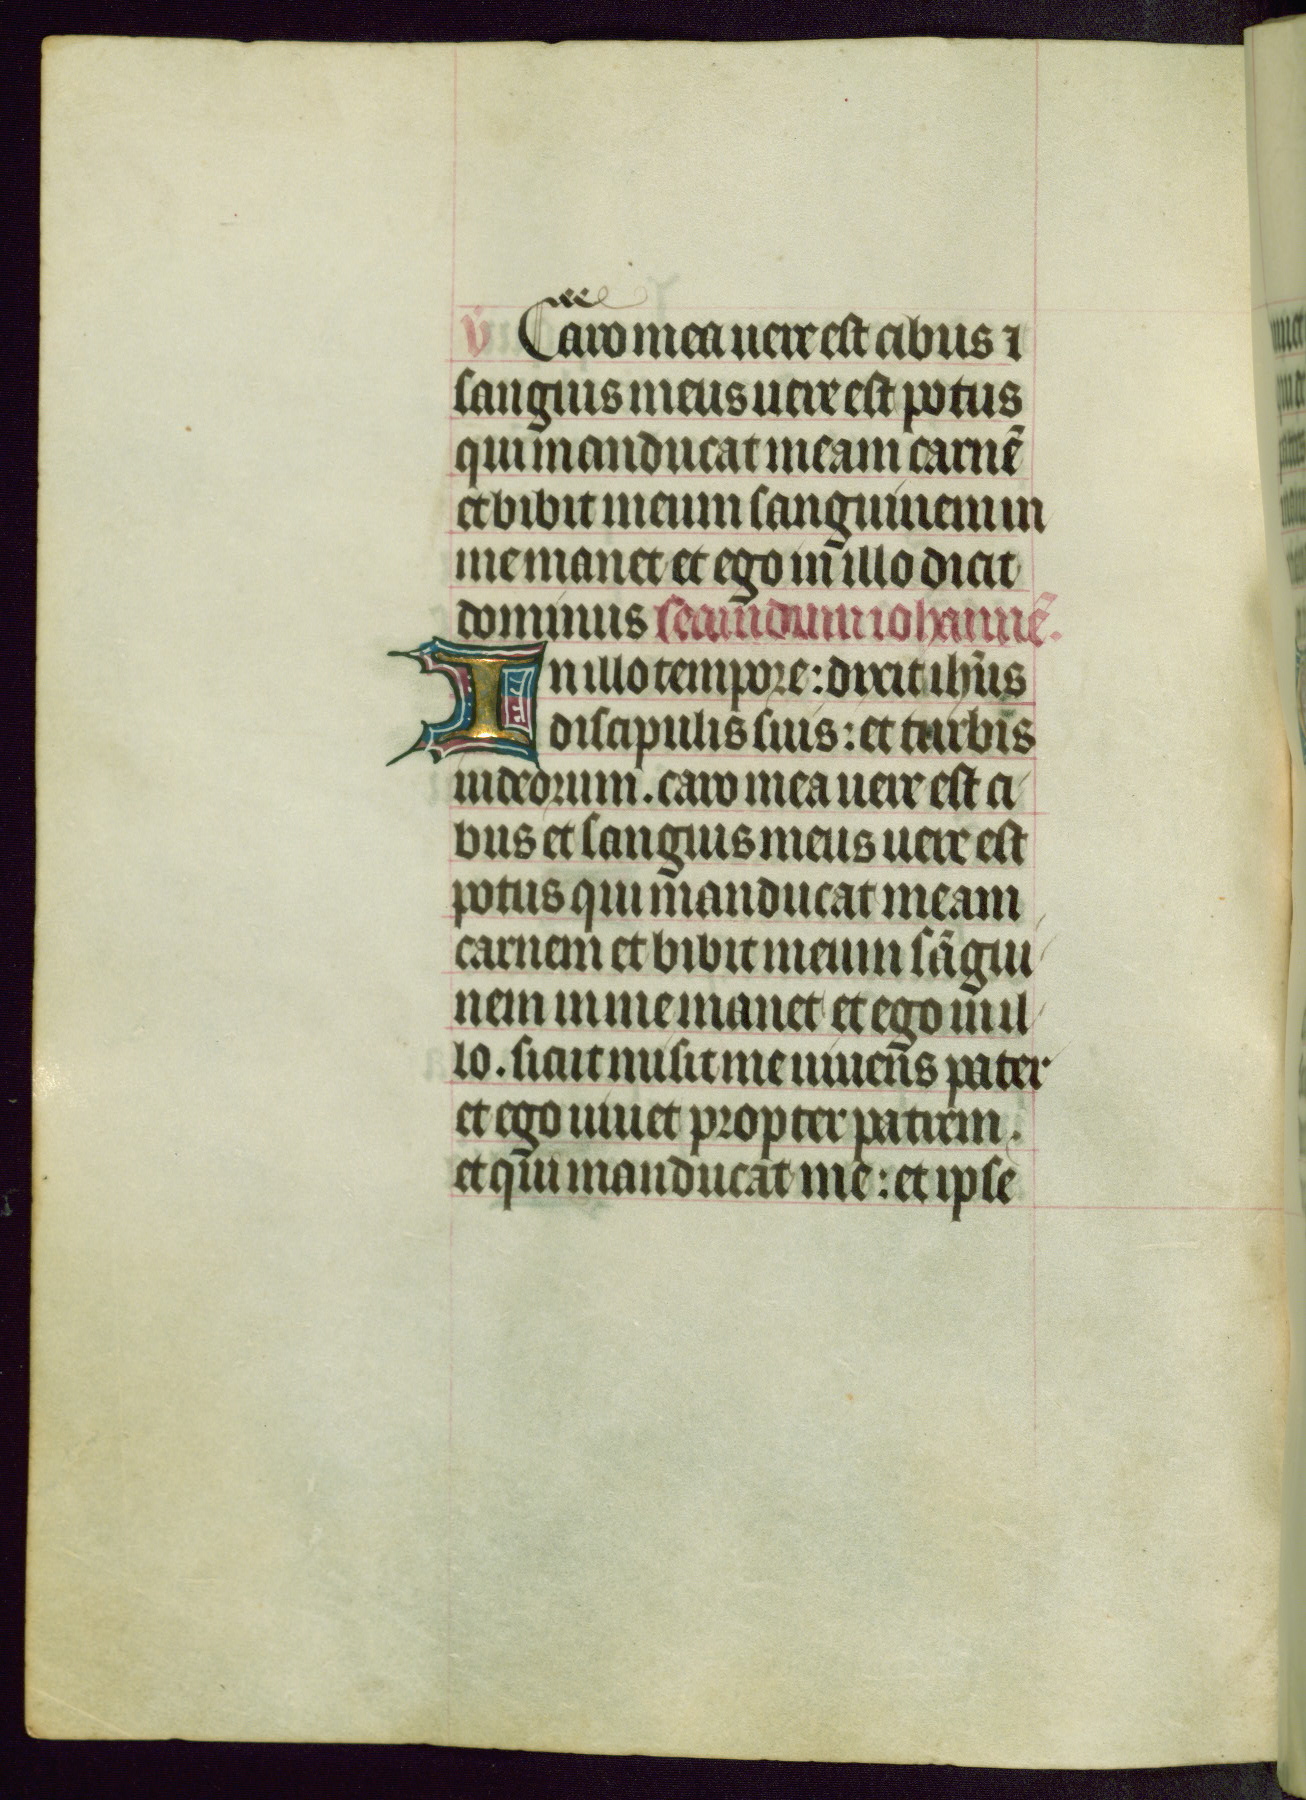 v̄ Caro mea uere est cibus ⁊
sanguis meus uere est potus
qui manducat meam carnē
et bibit meum sanguinem in
me manet et ego in illo dicit
dominus secundum iohannē.
In illo tempore: dixit ihūs
discipulis suis: et turbis
iudeorum. caro mea uere est ci
bus et sanguis meus uere est
potus qui manducat meam
carnem et bibit meum sāgui
nem in me manet et ego in il
lo. sicut misit me uiuens pater
et ego uiuet propter patrem.
et qui manducat me: et ipse